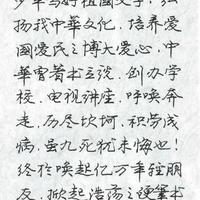 少年写好祖國文字，弘
扬我中華文化，培养爱
國爱民之博大爱心，中
華雪著书立说，创办学
校，电视讲座，呼唤奔
走，历尽坎坷，积劳成
病，虽九死犹未悔也！
终於唤起亿万年轻朋
友，掀起浩荡之硬筆书